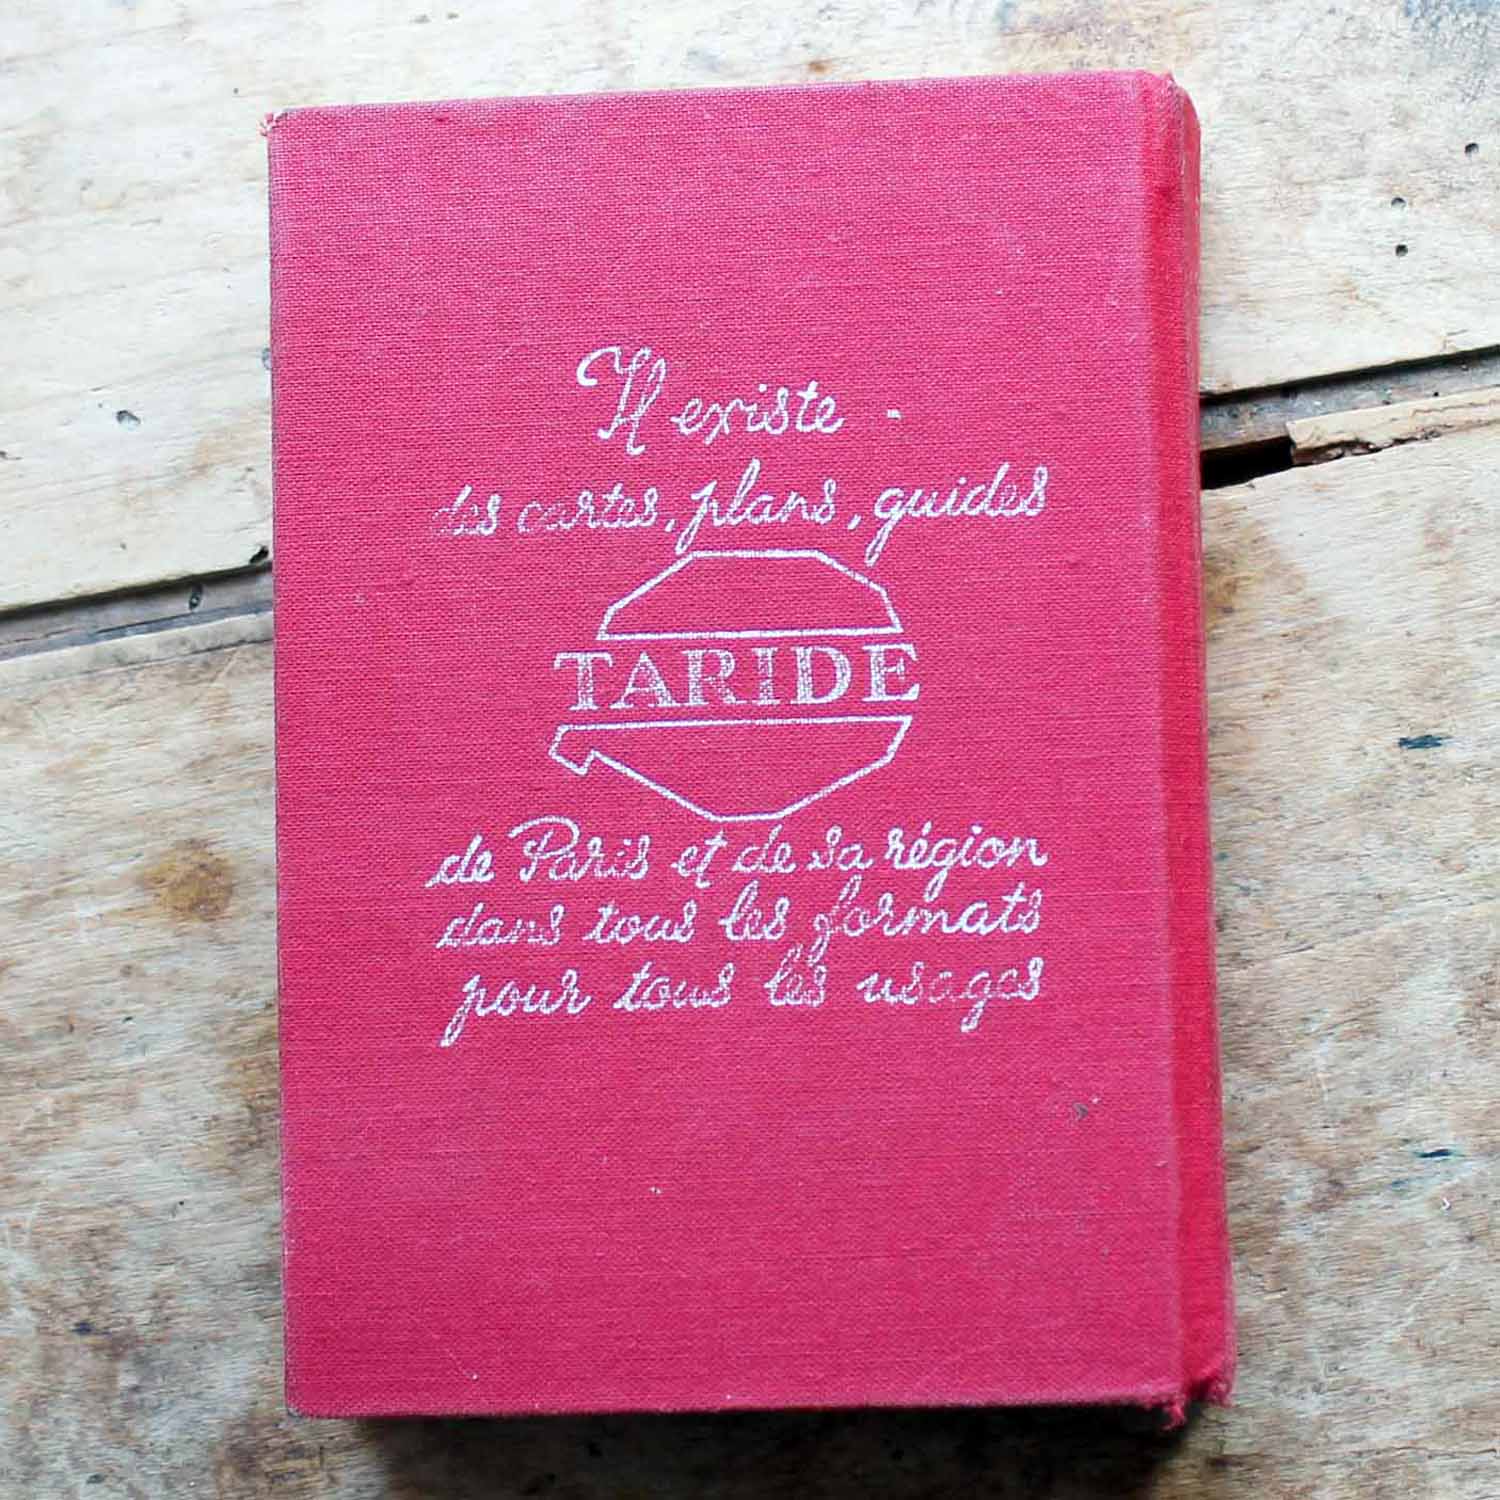 Il existe
des cartes, plans, guides
TARIDE
de Paris et de sa région
dans tous les formats
pour tous les usages